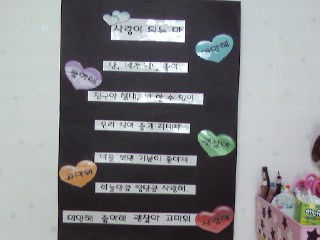 사랑이 되는 말
미안해
난, 네가 참, 좋아.
좋아해
친구야 힘내, 넌 할 수 있어
우리 사이 좋게 지내자.
괜찮아
너를 보면 기분이 좋아져.
고마워
하늘만큼 땅만큼 사랑해.
미안해 좋아해 괜찮아 고마워
사랑해